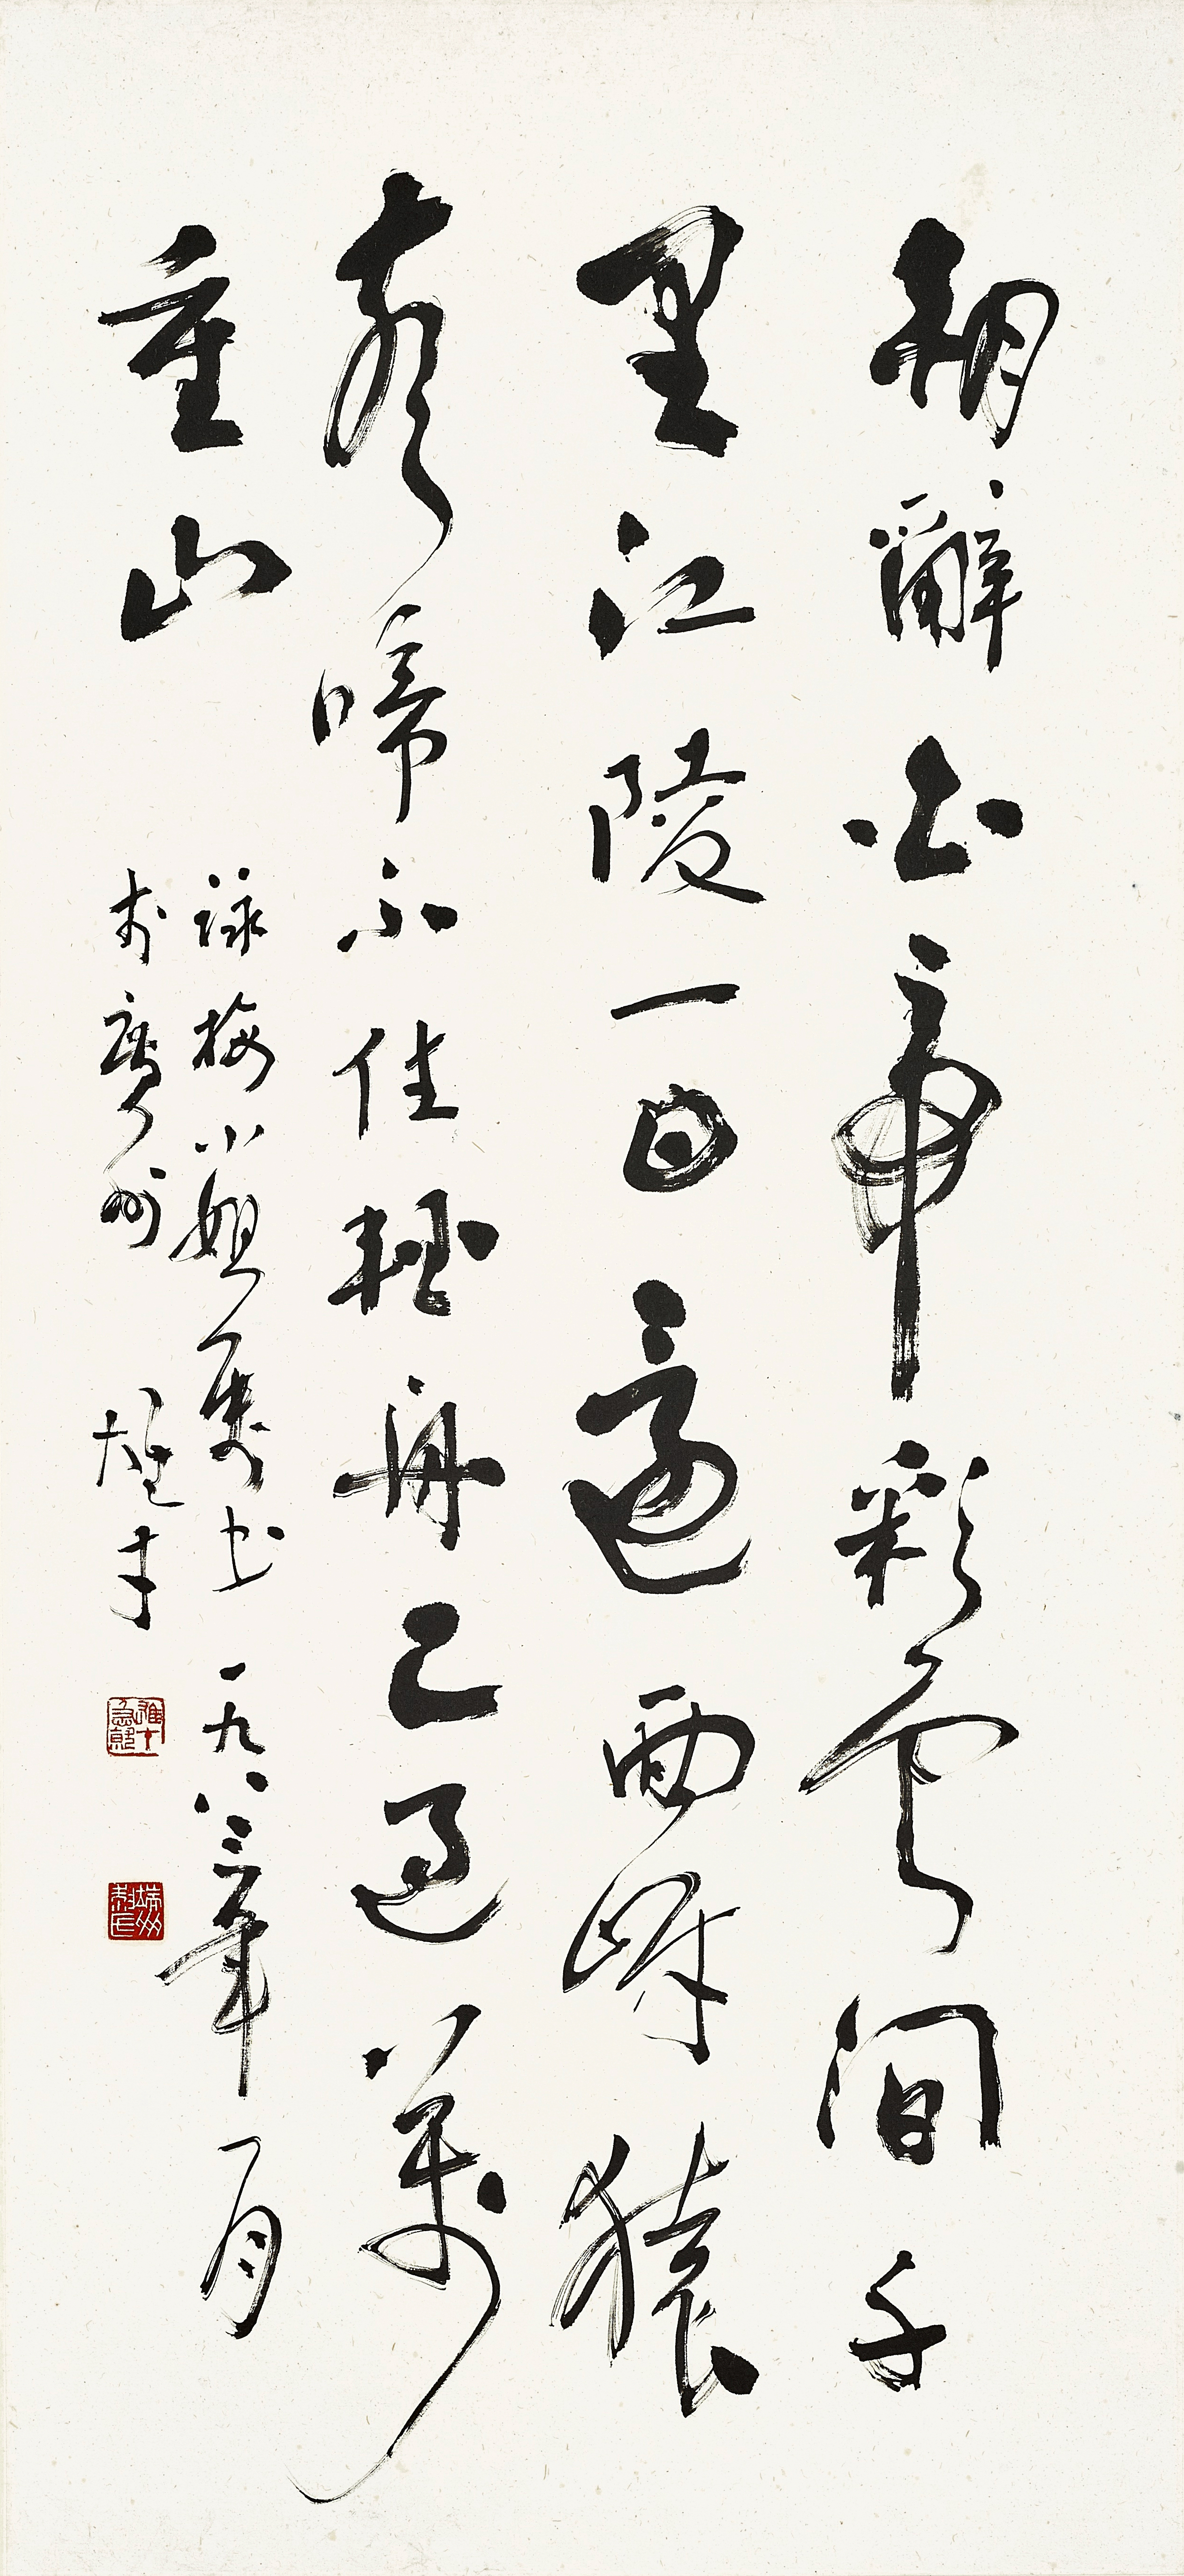 朝辭白帝彩雲間千
里江陵一日還兩岸猿
聲啼不住輕舟已過萬
重山
詠梅小姐屬書 一九八三年一月
於廣州 雄才
雄才急就
端州黎氏